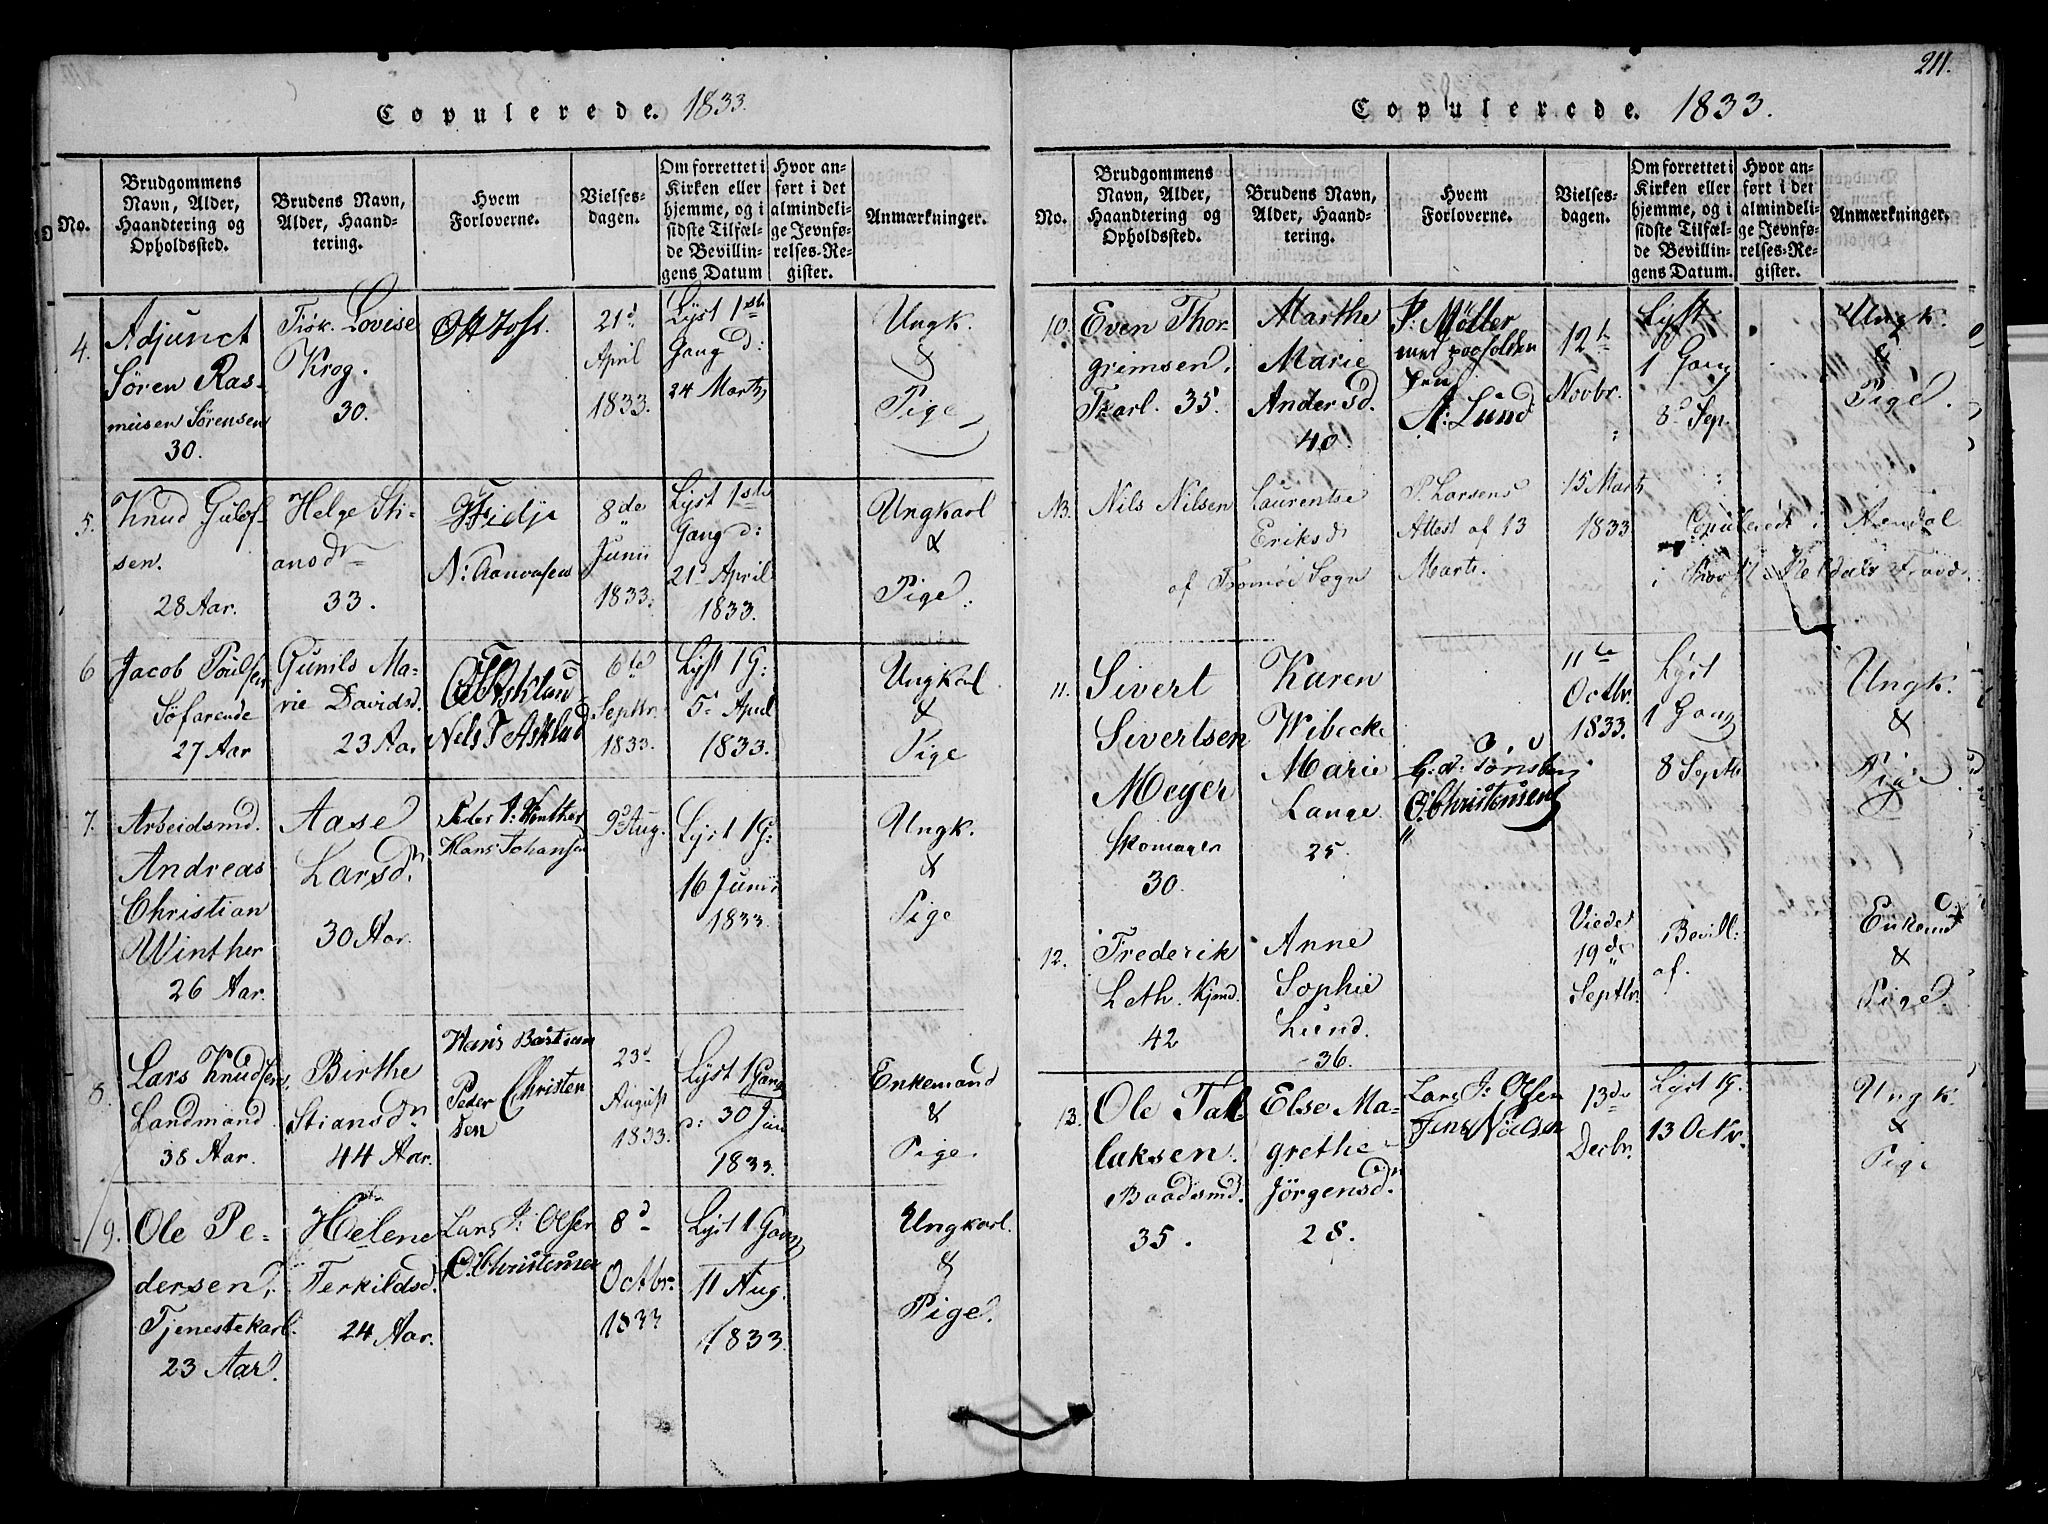 Copulerede. 1833.
No.
Brudgommens
Navn, Alder,
Haandtering og
Opholdssted.
Brudens Navn,
Alder, Haand-
tering.
Hvem
Forloverne.
Vielses-
dagen.
Om forrettet i
Kirken eller
hjemme, og i
sidste Tilfæl-
de Bevillin-
gens Datum
Hvor an-
ført i det
almindeli-
ge Jevnfø-
relses-Re-
gister.
Anmærkninger.
4.
Adjunct
Søren Ras-
musen Sørensen
30.
Frøk. Lovise
Krog.
30.
21d
April
1833.
Lyst 1ste
Gang d:
24 Marts
Ungk.
&
Pige
5.
Knud Gulof-
sen.
28 Aar.
Helge Sti-
ansdr
33.
8de
Junii
1833.
Lyst 1ste
Gang d:
21d April
1833.
Ungkarl
&
Pige.
6
Jacob Poulsen
Søfarende
27 Aar
Gunils Ma-
rie Davidsd.
23 Aar
Nels T Asklad
6te
Septbr.
1833.
Lyst 1 G:
5. April
1833.
Ungkarl
&
Pige
7.
Arbeidsmd.
Andreas
Christian
Winther
26 Aar.
Aase
Larsdr.
30 Aar.
Peder A: Winther
Hans Johansen
9d Aug.
Lyst 1 G:
16 Junii
1833.
Ungk.
&
Pige
8.
Lars Knudsen,
Landmand
38 Aar.
Birthe
Stiansdr
44 Aar.
Hans Bastian
Peder Christen
sen
23d
August
1833.
Lyst 1 Gang
d: 30 Jun
1833.
Enkemand
&
Pige.
9.
Ole Pe-
dersen,
Tjenestekarl.
23 Aar.
Helene
Terkildsd.
24 Aar.
Lars J: Olsen
O: Christensen
8d
Octbr.
1833
Lyst 1 Gang
11 Aug.
1833.
Ungkarl.
&
Pige.
211.
Copulerede. 1833.
No.
Brudgommens
Navn, Alder,
Haandtering og
Opholdssted.
Brudens Navn,
Alder, Haand-
tering.
Hvem
Forloverne.
Vielses-
dagen.
Om forrettet i
Kirken eller
hjemme, og i
sidste Tilfæl-
de Bevillin-
gens Datum.
Hvor an-
ført i det
almindeli-
ge Jevnfø-
relses-Re-
gister.
Anmærkninger.
10.
Even Thor-
grimsen,
35.
Marthe
Marie
Andersd.
40.
P: Møller
A: Lund
12te
Novbr.
Lyst
1 Gang
8d Sep.
Ungk.
&
Pige.
13.
Nils Nilsen
Laurentse
Eriksdr
af Tromøe Sogn
P. Larsens
Attest af 13
Marts.
15 Marts
1833
Copuleret i Arendal
i
11.
Sivert
Sivertsen
Meyer
Skomager
30.
Karen
Wibecke
Marie
Lange
25.
O: Christensen
11te
Octbr.
1833.
Lyst
1 Gang
8 Septb.
Ungk.
&
Pige
12.
Frederik
Leth. Kjmd.
42
Anne
Sophie
Lund.
36.
Viedes
19de
Septbr.
Bevill:
af.
Enkemd
&
Pige.
13.
Ole Tal-
laksen.
Baadsmd.
35.
Else Ma-
grethe
Jörgensdr.
28.
Lars J: Olsen
Jens Nielsen
13de
Decbr.
Lyst 1 G.
13 Octbr.
Ungk.
&
Pige